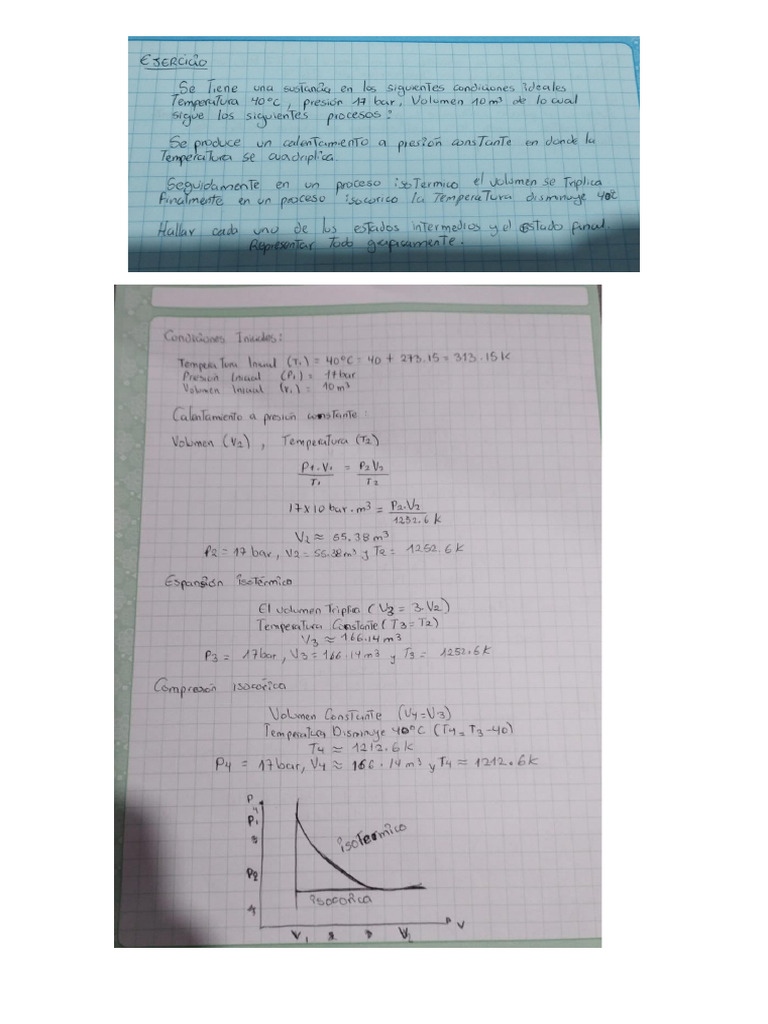 EJERCICIO
Se Tiene una sustancia en las siguientes condiciones ideales
Temperatura 40°C, presión 17 bar, Volumen 10 m³ de lo cual
sigue los siguientes procesos:
Se produce un calentamiento a presión constante en donde la
Temperatura se cuadriplica.
Seguidamente en un proceso isotermico el volumen se Triplica
Finalmente en un proceso isocorico la Temperatura disminuye 40°C
Hallar cada uno de los estados intermedios y el estado final.
Representar Todo graficamente.
Condiciones Iniciales:
Temperatura Inicial (T1) = 40°C = 40 + 273.15 = 313.15 K
Presión Inicial (P1) = 17 bar
Volumen Inicial (V1) = 10 m³
Calentamiento a presión constante:
Volumen (V2), Temperatura (T2)
P1.V1 / T1 = P2 V2 / T2
17x10 bar.m³ = P2.V2 / 1252.6 K
V2 ≈ 55.38 m³
P2 = 17 bar, V2 = 55.38 m³ y T2 = 1252.6 K
Espansión isotérmico
El volumen Triplica (V3 = 3.V2)
Temperatura Constante (T3 = T2)
V3 ≈ 166.14 m³
P3 = 17 bar, V3 = 166.14 m³ y T3 = 1252.6 K
Compresión isocorica
Volumen Constante (V4 = V3)
Temperatura Disminuye 40°C (T4 = T3 - 40)
T4 ≈ 1212.6 K
P4 = 17 bar, V4 ≈ 166.14 m³ y T4 = 1212.6 K
P
P1
isotermico
P2
isocorica
V1 2 3 V2
V